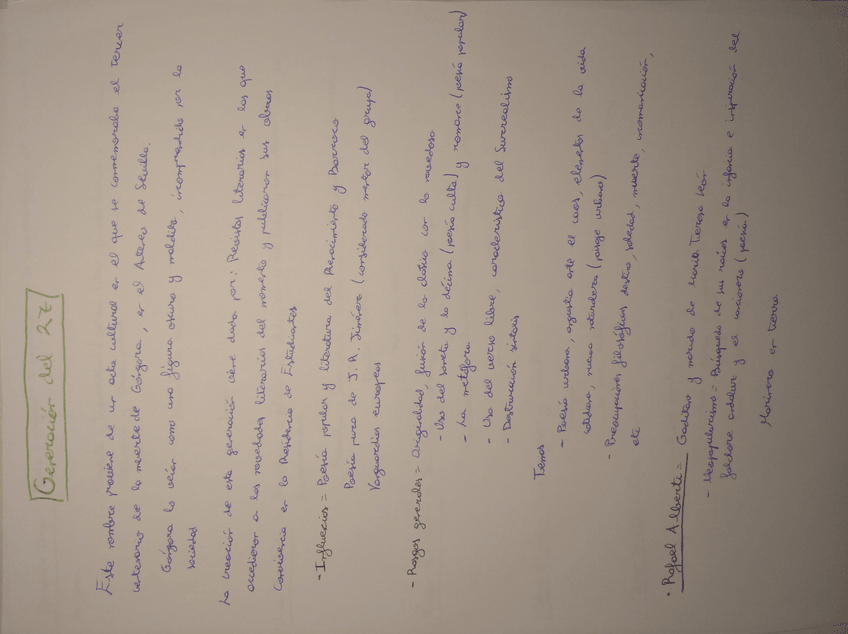 Generación del 27
Este nombre proviene de un acto cultural en el que se conmemoraba el tercer
centenario de la muerte de Góngora, en el Ateneo de Sevilla.
Góngora lo veían como una figura oscura y maldita, incomprendido por la
sociedad
La creación de esta generación viene dada por: Revistas literarias en las que
accedieron a las novedades literarias del momento y publicaron sus obras
Convivencia en la Residencia de Estudiantes
- Influencias = Poesía popular y literatura del Renacimiento y Barroco
Poesía pura de J. R. Jiménez (considerado mentor del grupo)
Vanguardias europeas
- Rasgos generales = Originalidad, fusión de lo clásico con lo novedoso
- Uso del soneto y la décima (poesía culta) y romance (poesía popular)
- La metáfora
- Uso del verso libre, característico del Surrealismo
- Destrucción sintaxis
Temas
- Poesía urbana, angustia ante el caos, elementos de la vida
cotidiana, nueva (paisaje urbano)
- Preocupaciones filosóficas, destino, soledad, muerte, incomunicación,
etc
· Rafael Alberti = Gaditano y marido de María Teresa León
- Neopopularismo = Búsqueda de sus raíces en la infancia e inspiración del
folclore andaluz y el cancionero (poesía)
Marinero en tierra